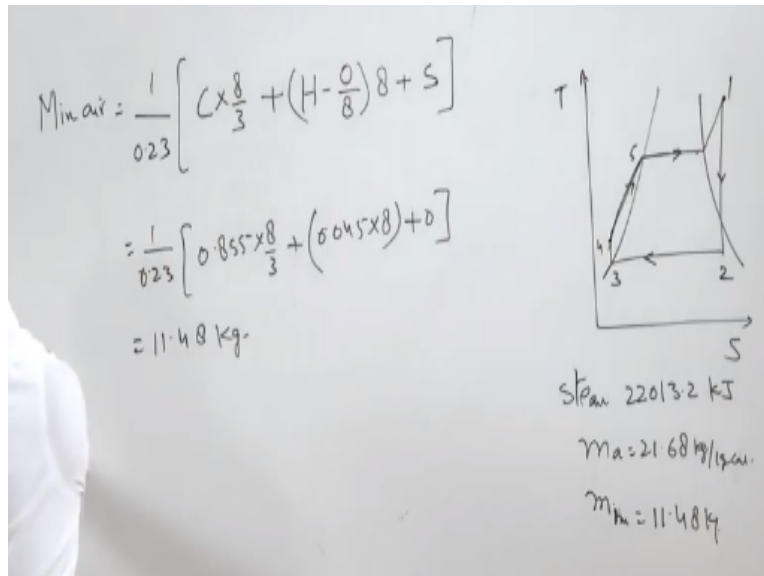 Min air = 1/0.23 [ C × 8/3 + (H - O/8) 8 + S ]
= 1/0.23 [ 0.855 × 8/3 + (0.045 × 8) + 0 ]
= 11.48 kg.
T
1
5
4
3
2
S
Steam 22013.2 kJ
ma = 21.68 kg/kg coal.
mmin = 11.48 kg